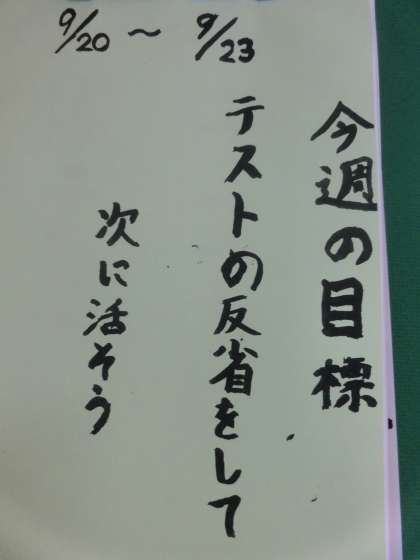 9/20 〜 9/23
今週の目標
テストの反省をして
次に活そう